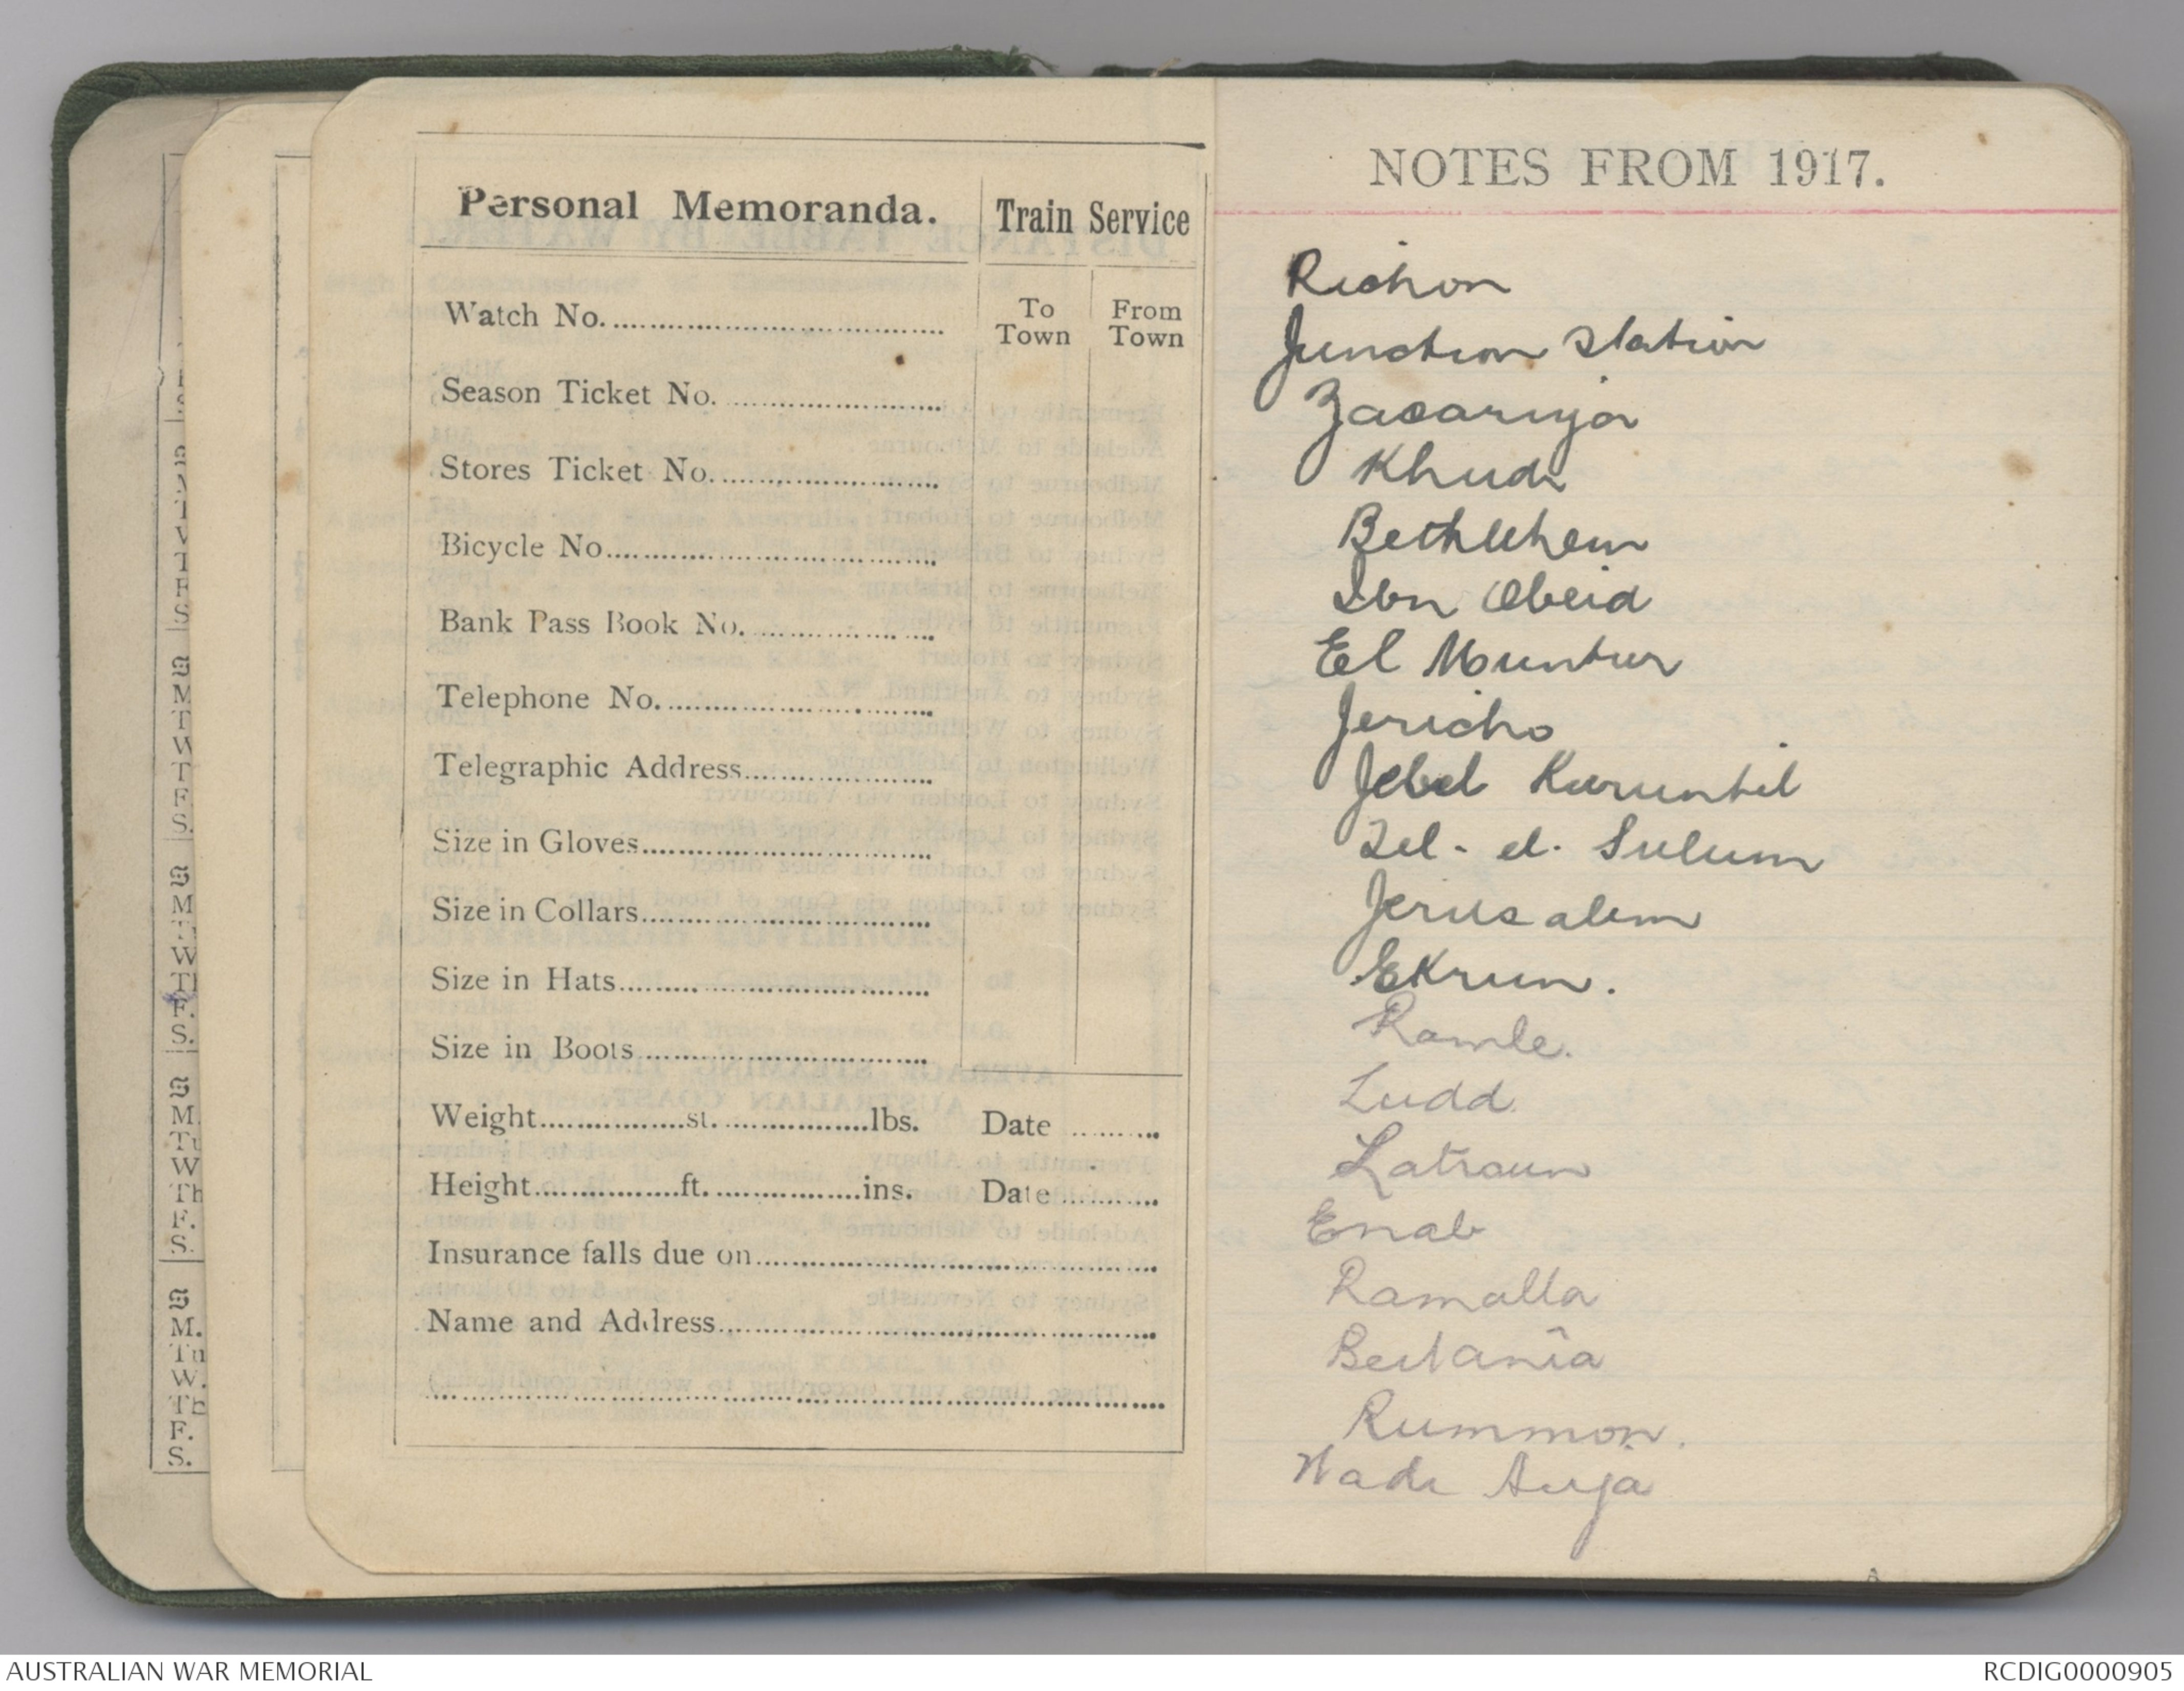 Personal Memoranda.
Train Service
To Town
From Town
Watch No.
Season Ticket No.
Stores Ticket No.
Bicycle No.
Bank Pass Book No.
Telephone No.
Telegraphic Address
Size in Gloves
Size in Collars
Size in Hats
Size in Boots
Weight st. lbs. Date
Height ft. ins. Date
Insurance falls due on
Name and Address
NOTES FROM 1917.
Richon
Junction Station
Zacariya
Khudr
Bethlehem
Ibn Obeid
El Muntur
Jericho
Jebel Kuruntul
Tel-el-Sulum
Jerusalem
Ekrun.
Ramle.
Ludd.
Latraun
Enab
Ramalla
Beitania
Rummon.
Wadi Auja
AUSTRALIAN WAR MEMORIAL
RCDIG0000905